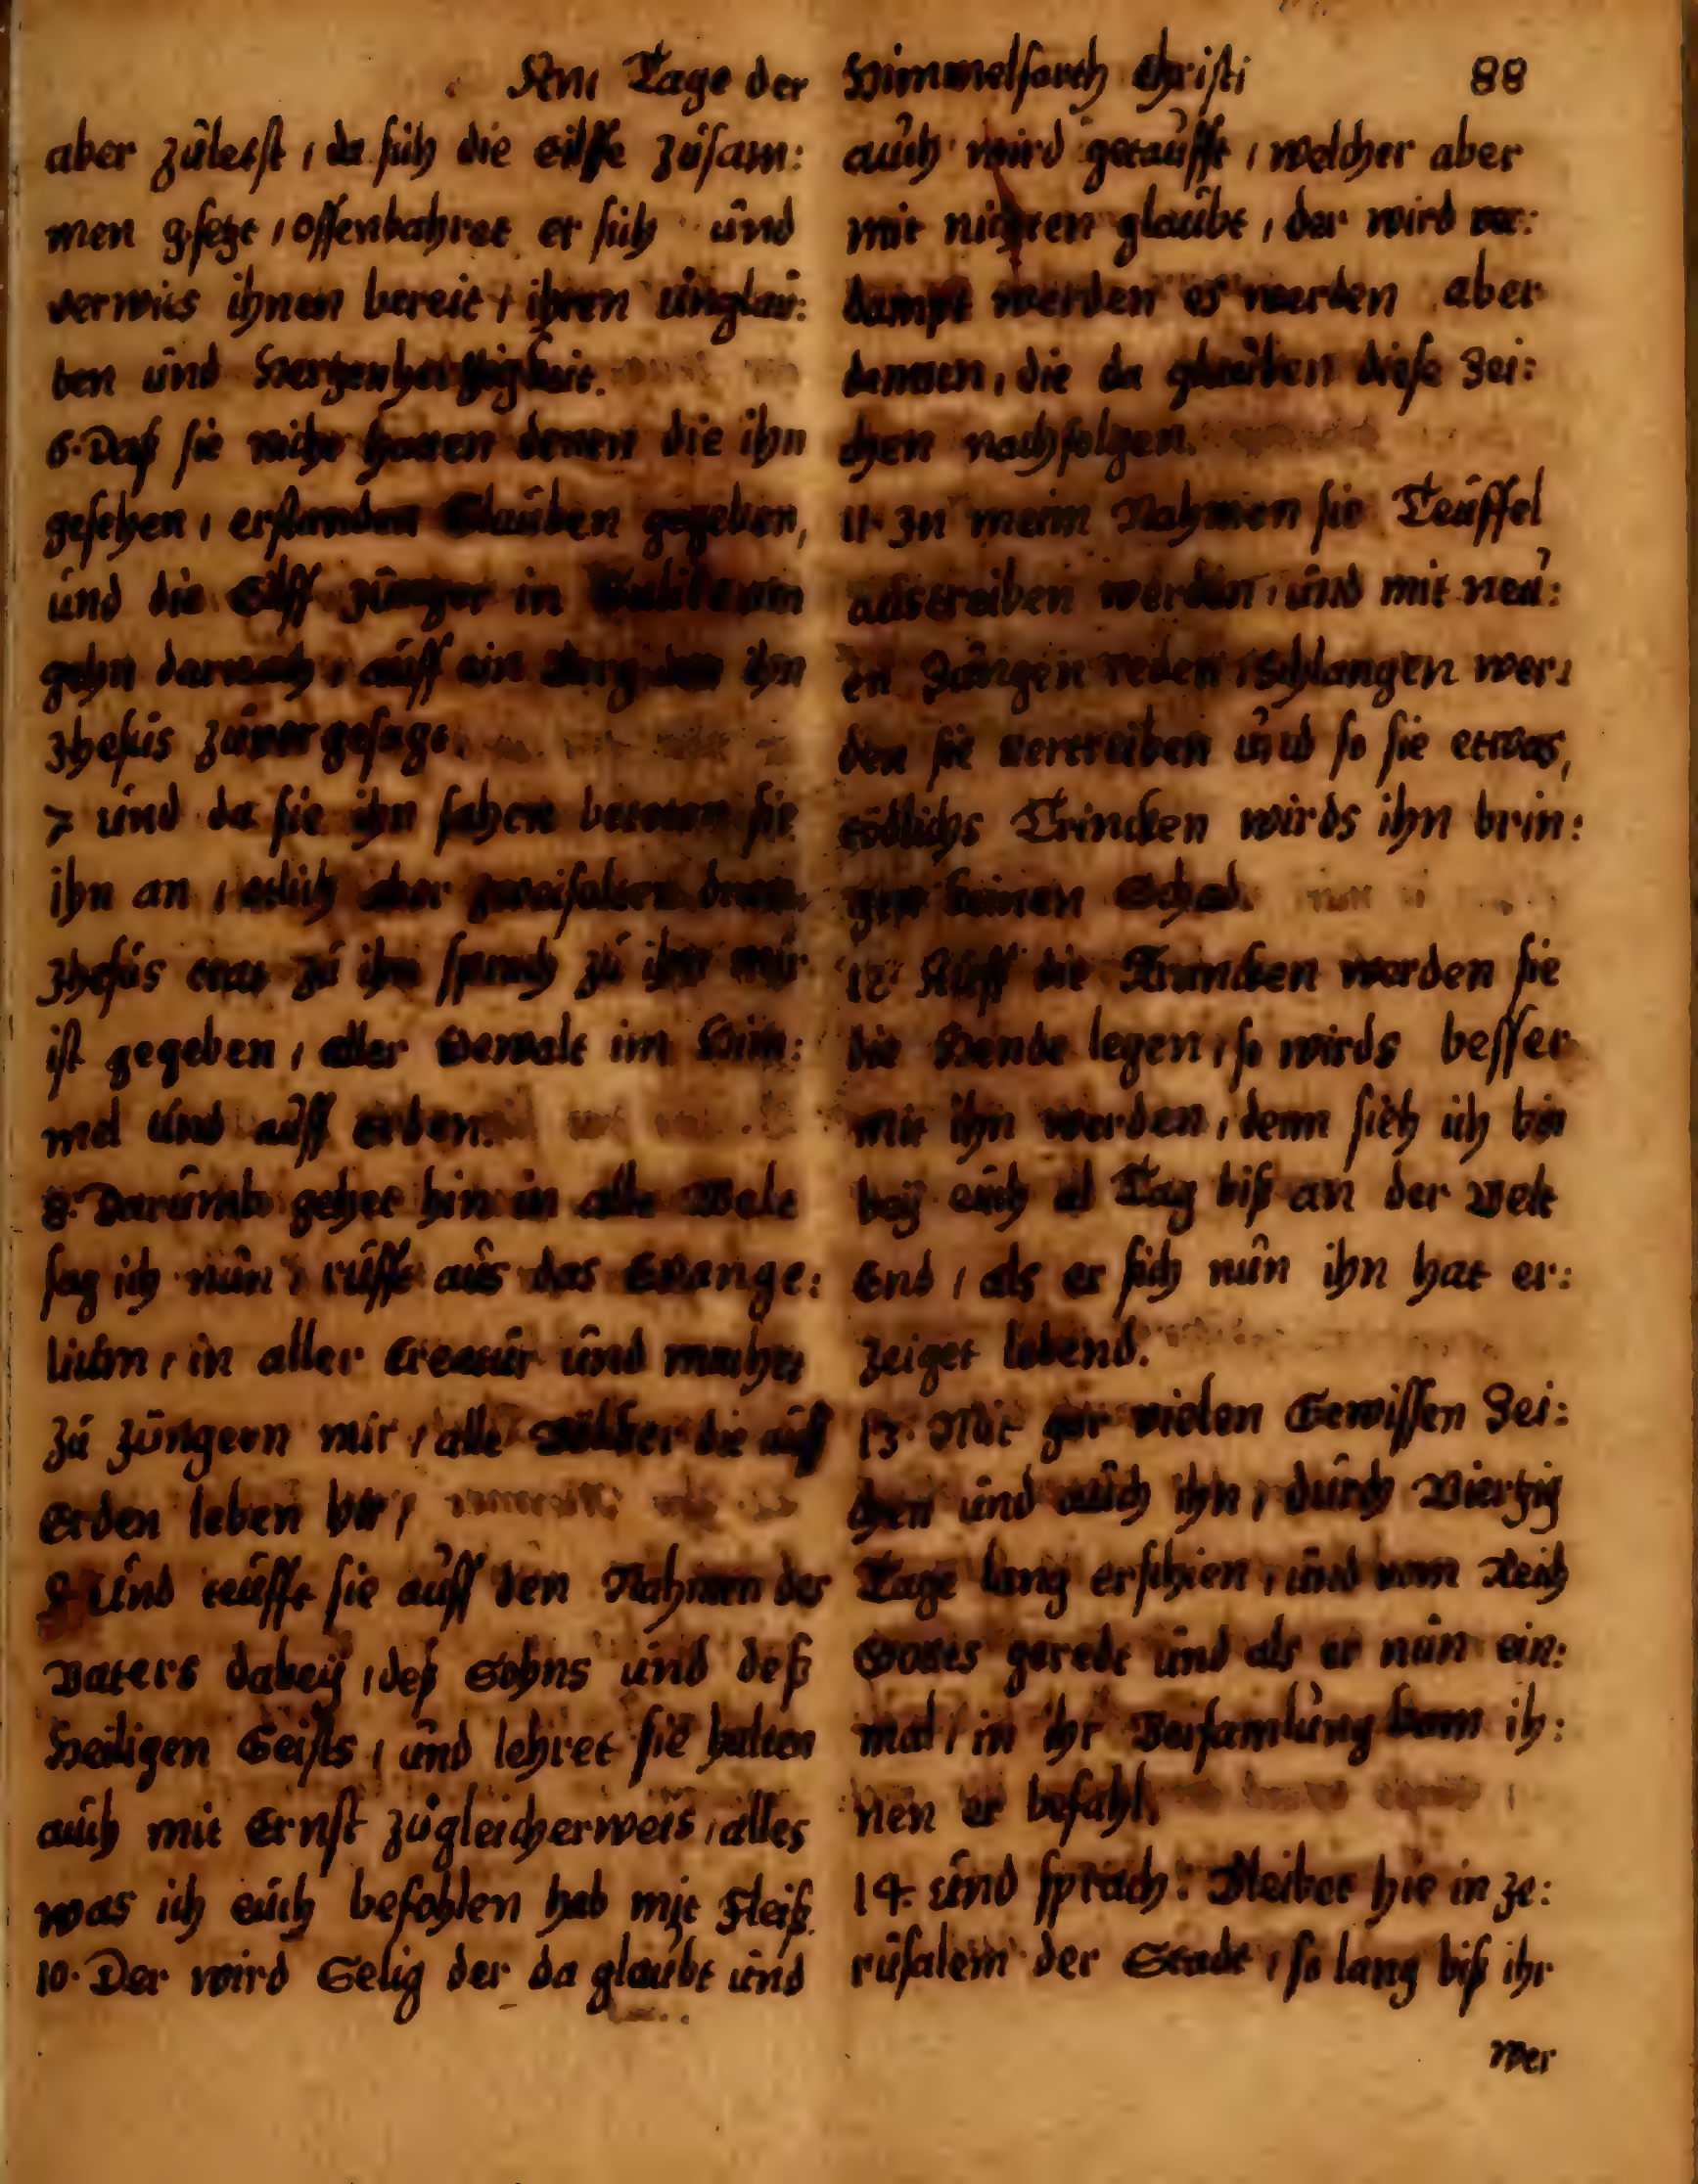 Am Tage der Himmelfarth Christi 88
aber zuletst / da sich die eilffe zusam:
men gsetzt / offenbahret er sich und
verwies ihnen bereit / ihren unglau:
ben und Hertzenhartigkeit.
6. Daß sie nicht hatten denen die ihn
gesehen / erstanden Glauben gegeben,
und die Eilff Junger in Galileam
gehn darnach / auff ein Berg den ihn
Jhesus zuvor gesagt.
7 und da sie ihn sahen beteten sie
ihn an / etlich aber zweifelten
Jhesus trat zu ihn sprach zu ihn mir
ist gegeben / aller Gewalt im Him:
mel und auff erden.
8. Darumb gehet hin in alle Welt
sag ich nun / rufft aus das Evange:
lium / in aller Creatur und machet
zu Jungern mir / alle Völcker die auff
Erden leben
9 Und teufft sie auff den Nahmen des
Vaters dabeÿ / deß Sohns und deß
Heiligen Geists / und lehret sie halten
auch mit Ernst zugleicherweis / alles
was ich euch befohlen hab mit Fleiß.
10. Der wird Selig der da glaubt und
auch wird getaufft / welcher aber
mit nichten glaubt / der wird ver:
dampt werden es werden aber
denenen, die da glauben diese Zei:
chen nachfolgen.
11. In meim Nahmen sie Teuffel
austreiben werden / und mit neu:
en Zungen reden / Schlangen wer:
den sie vertreiben und so sie etwas,
tödlichs Trincken wirds ihn brin:
gen keinen Schad.
12. Auff die Krancken werden sie
die Hende legen / so wirds besser
mit ihn werden / denn sieh ich bin
beÿ euch all Tag biß an der Welt
End / als er sich nun ihn hat er:
zeiget lebend.
13. Mit gar vielen Gewissen Zei:
chen und auch ihn / durch Viertzig
Tage lang erschien / und vom Reich
Gottes geredt und als er nun ein:
mal / in ihr Versamlung kam ih:
nen er befahl.
14. und sprach: Bleibet hie in Je:
rusalem der Stadt / so lang biß ihr
wer